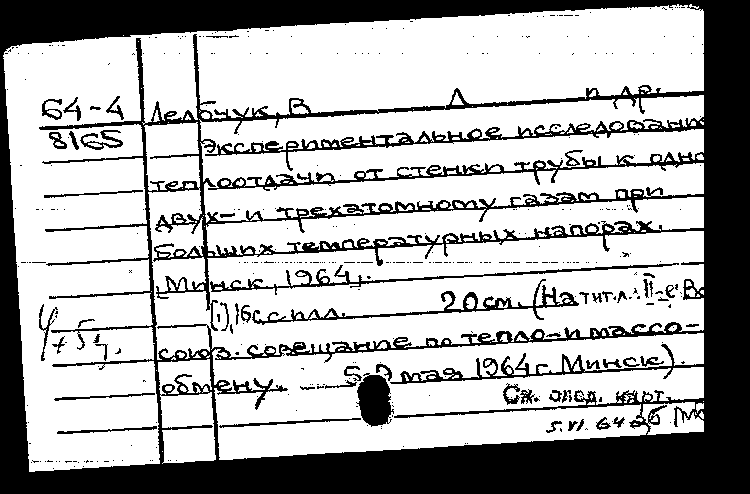 64-4 Лельчук, В Л и др.
8165
Экспериментальное исследование
теплоотдачи от стенки трубы к одно
двух- и трехатомному газам при
больших температурных напорах.
[Минск, 1964].
[1], 16 с. с илл. 20 см. (На тит. л.: II-е Вс
союз. совещание по тепло- и массо-
обмену. 5-9 мая 1964 г. Минск).
См. след. карт.
5.VI.64